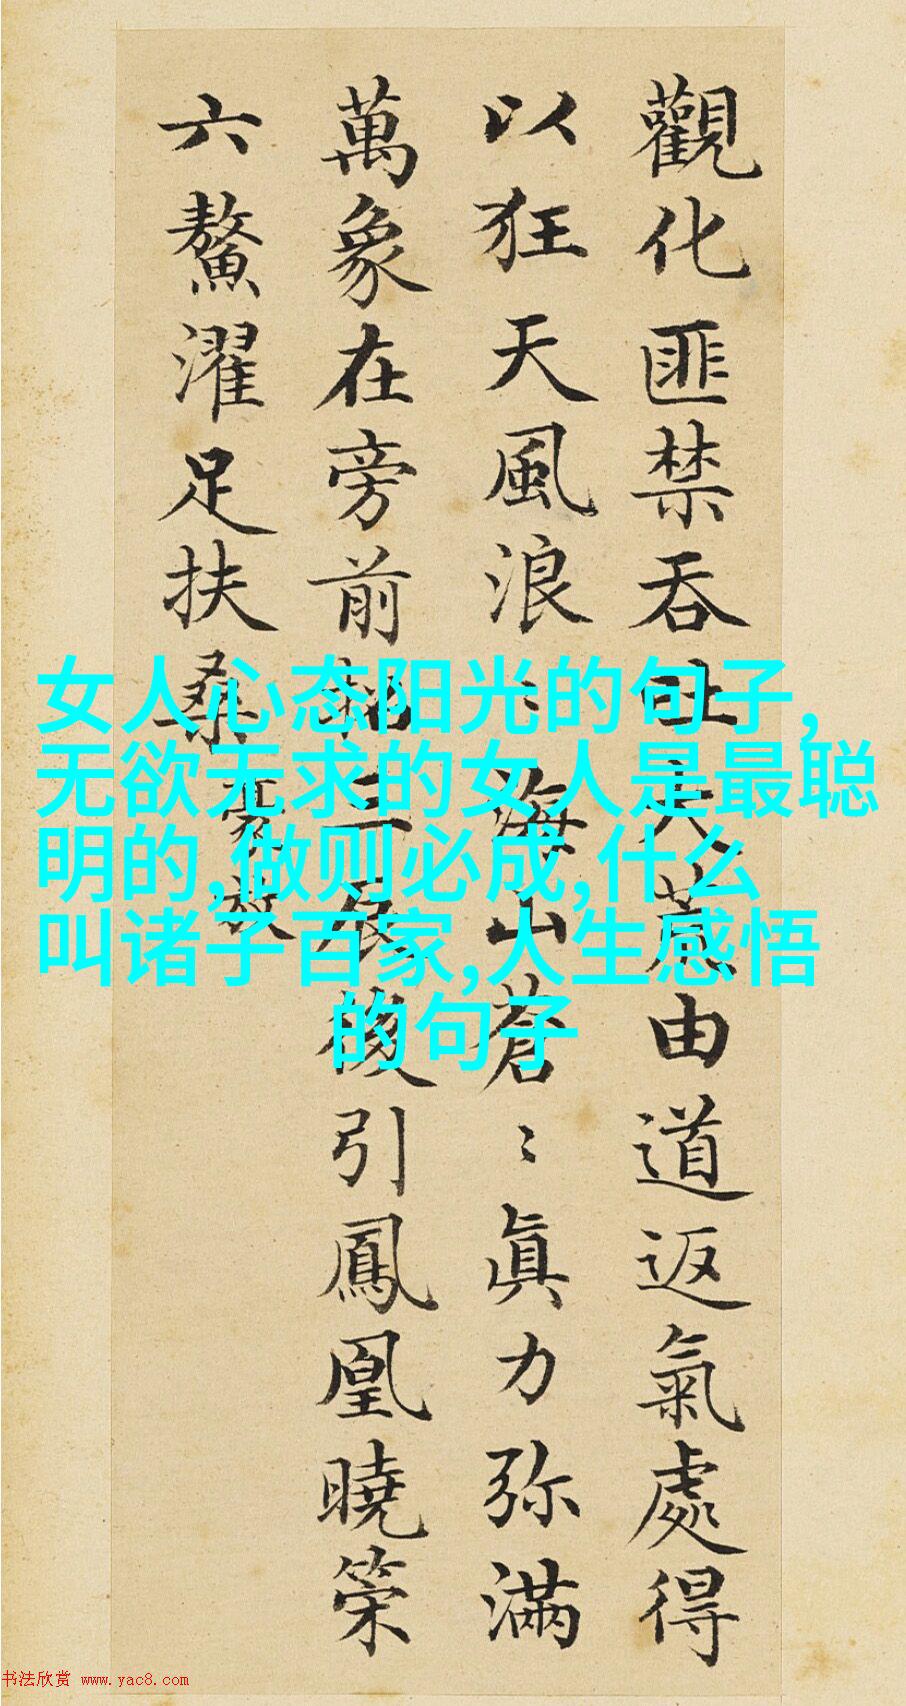 觀化匪禁吞吐大荒由道返氣處得
以狂天風浪〻海山蒼〻眞力弥滿
萬象在旁前招三辰後引鳳凰曉策
六鰲濯足扶桑 豪放
女人心态阳光的句子,
无欲无求的女人是最聪
明的,做则必成,什么
叫诸子百家,人生感悟
的句子
书法欣赏 www.yac8.com